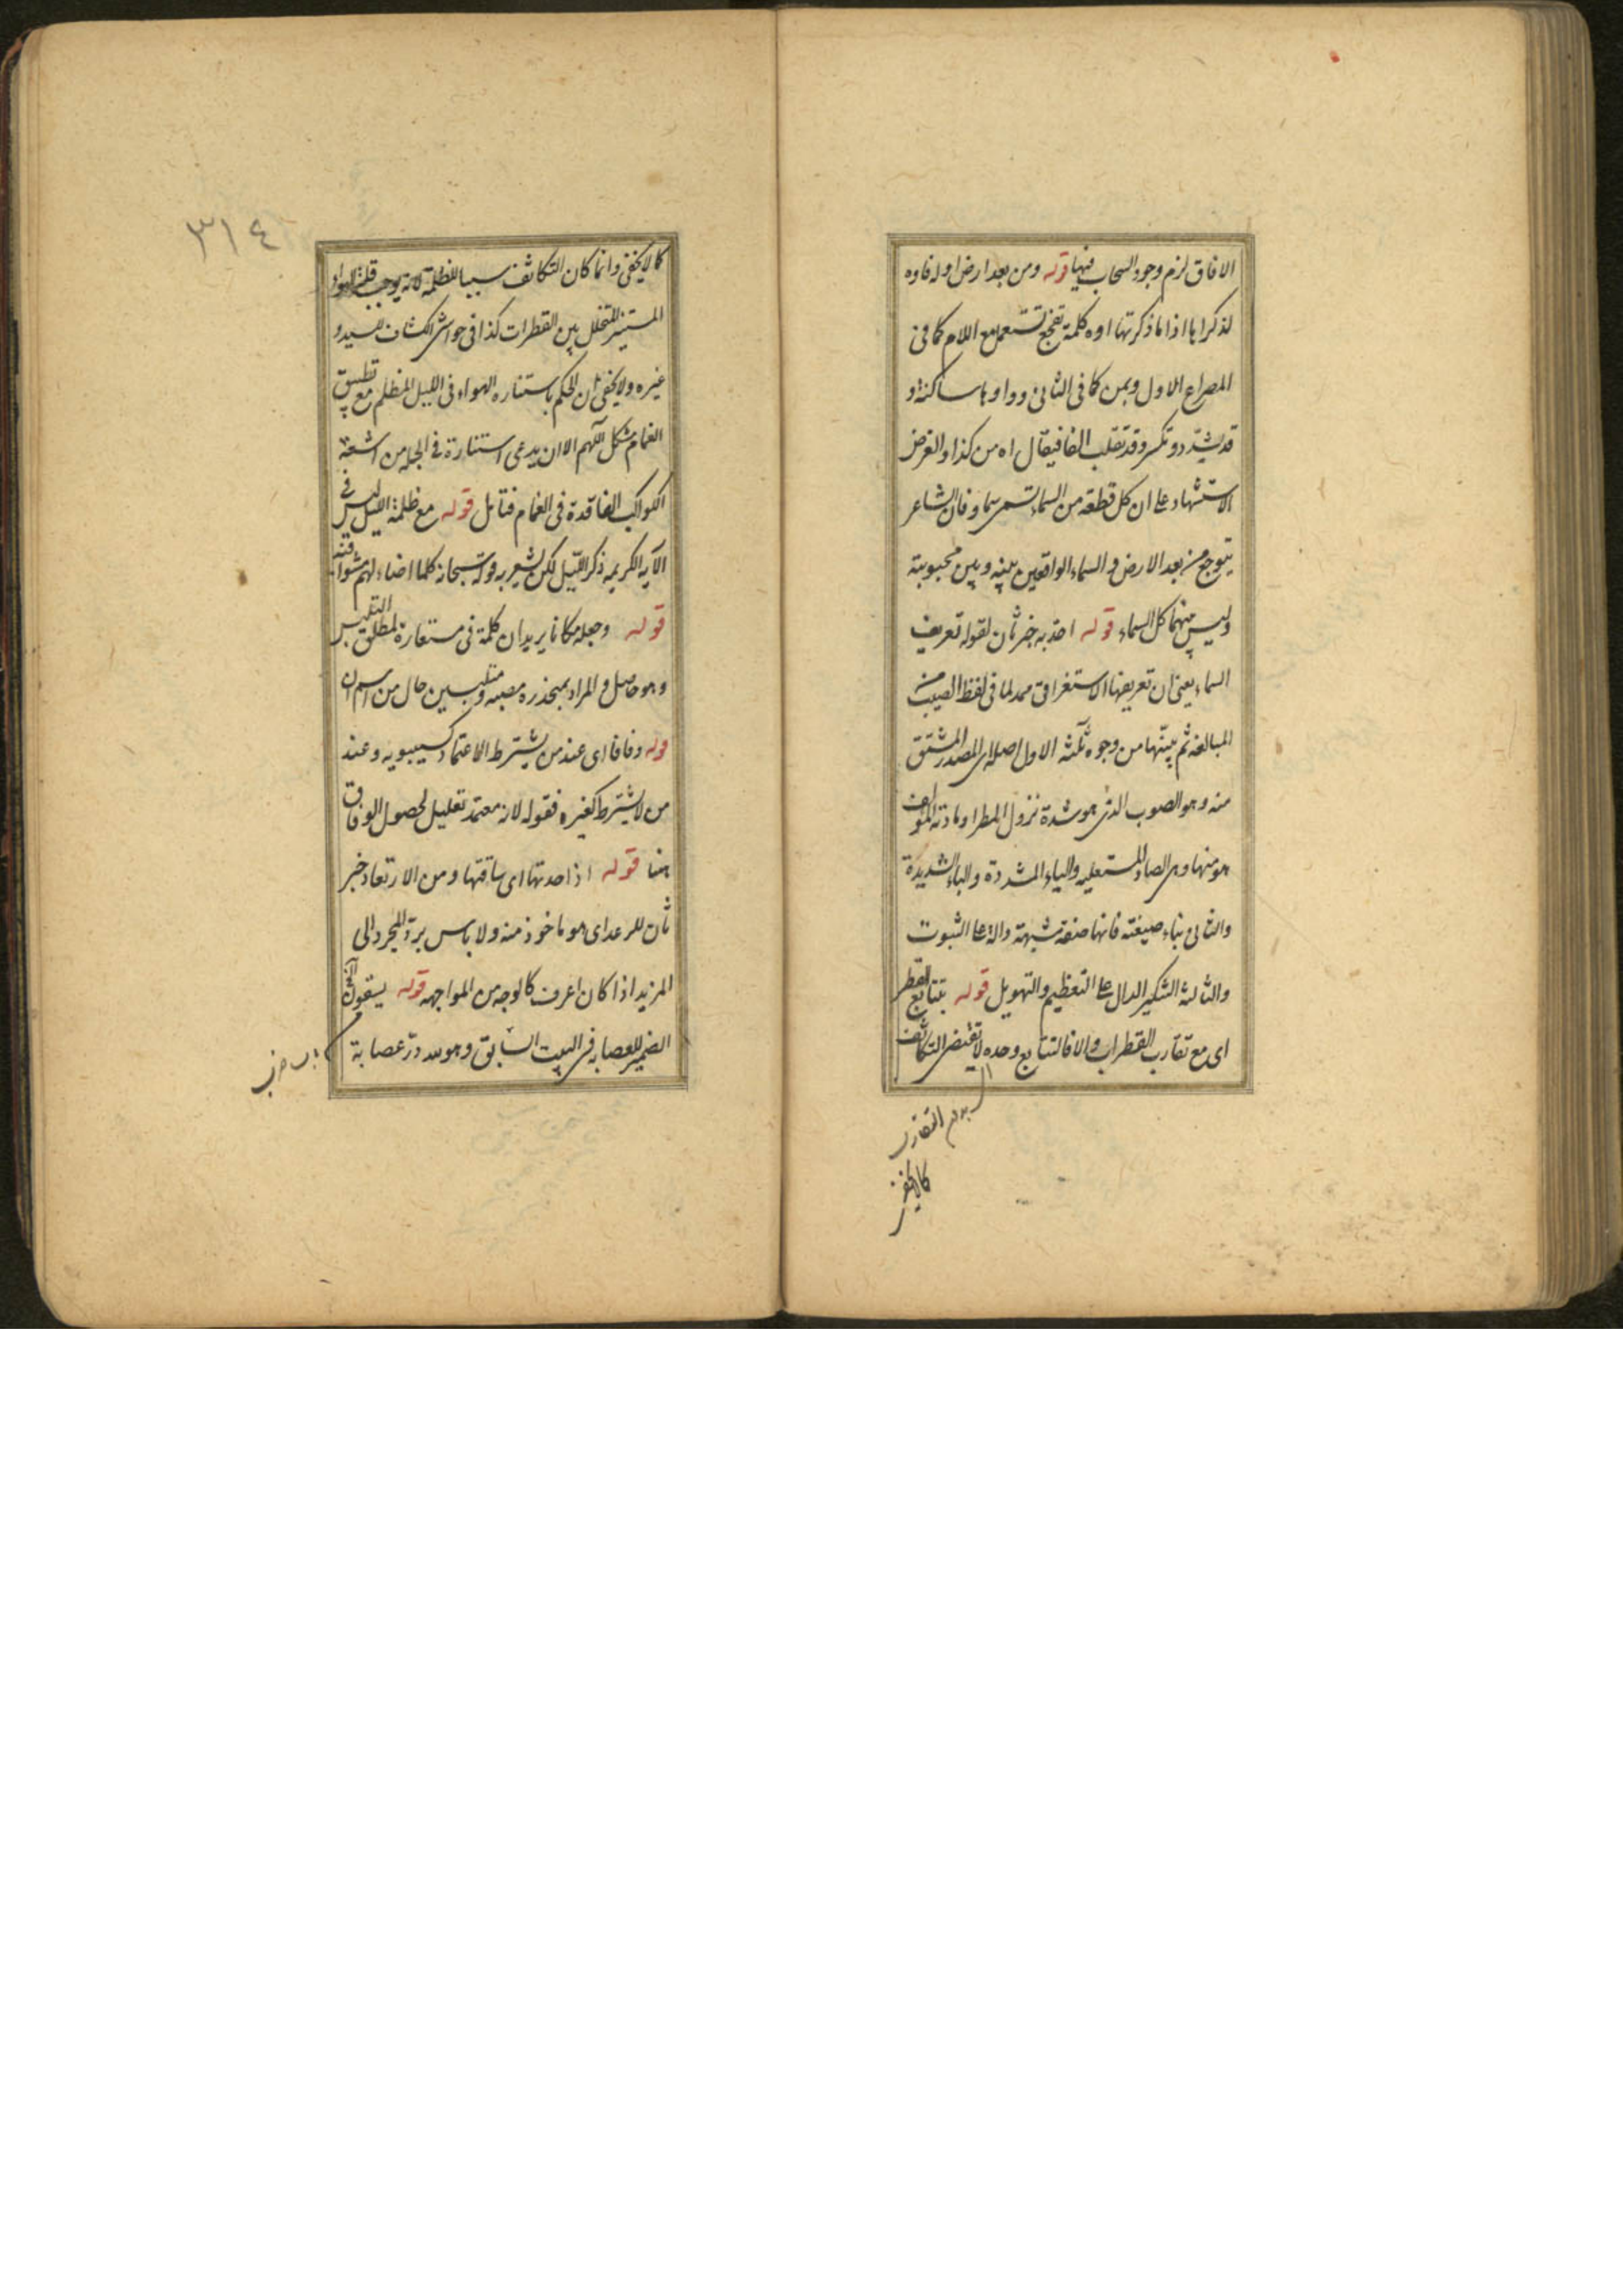 الافاق لزم وجود السحاب فيها قوله ومن بعد ارض اوله فاوه
لذكراها اذا ما ذكرتها اوه كلمة تفجع تستعمل مع اللام كما فى
المصراع الاول وبمن كما فى الثانى وواوها ساكنة و
قد يشدد وتكسر وقد تقلب الفا فيقال اه من كذا والغرض
الاستشهاد على ان كل قطعة من السماء تسمى سماء فان الشاعر
يتوجع من بعد الارض والسماء الواقعين بينه وبين محبوبته
وليس بينهما كل السماء قوله امد به خبر ثان لقوله تعريف
السماء يعنى ان تعريفها الاستغراقى ممد لما فى لفظ الصيب من
المبالغه ثم بينها من وجوه ثلثه الاول اصله اى المصدر المشتق
منه وهو الصوب الذى هو شدة نزول المطر او مادته المؤلف
هو منها وهى الصاد المستعليه والياء المشددة والباء الشديدة
والثانى بناء صيغته فانها صفة مشبهة دالة على الثبوت
والثالثة التنكير الدال على التعظيم والتهويل قوله بتتابع القطر
اى مع تقارب القطرات والا فالتتابع وحده لا يقتضى التكاثف
بدون التقارب
كما لا يخفى
٣١٤
كما لا يخفى وانما كان التكاثف سببا للظلمة لانه يوجب قلة الهواء
المستنير المتخلل بين القطرات كذا فى حواشى الكشاف للسيد و
غيره ولا يخفى ان الحكم باستناره الهواء فى الليل المظلم مع تطبيق
الغمام مشكل اللهم الا ان يدعى استنارة فى الجمله من اشعة
الكواكب الفاقدة فى الغمام فتامل قوله مع ظلمة الليل ليس فى
الآيه الكريمه ذكر الليل لكن يشعر به قوله سبحانه كلما اضاء لهم مشوا فيه
قوله وجعله مكانا يريد ان كلمة فى مستعارة لمطلق التلبس
وهو حاصل والمراد بمنحدره مصبه ومتلبسين حال من اسم ان
قوله وفاقا اى عند من يشترط الاعتماد كسيبويه وعند
من لا يشترط كغيره فقوله لانه معتمد تعليل لحصول الوفاق
هنا قوله اذا حدتها اى ساقتها ومن الارتعاد خبر
ثان للرعد اى هو ماخوذ منه ولا باس برد المجرد الى
المزيد اذا كان اعرف كالوجه من المواجهه قوله يسقون
الضمير للعصابه فى البيت السابق وهو لله در عصابة